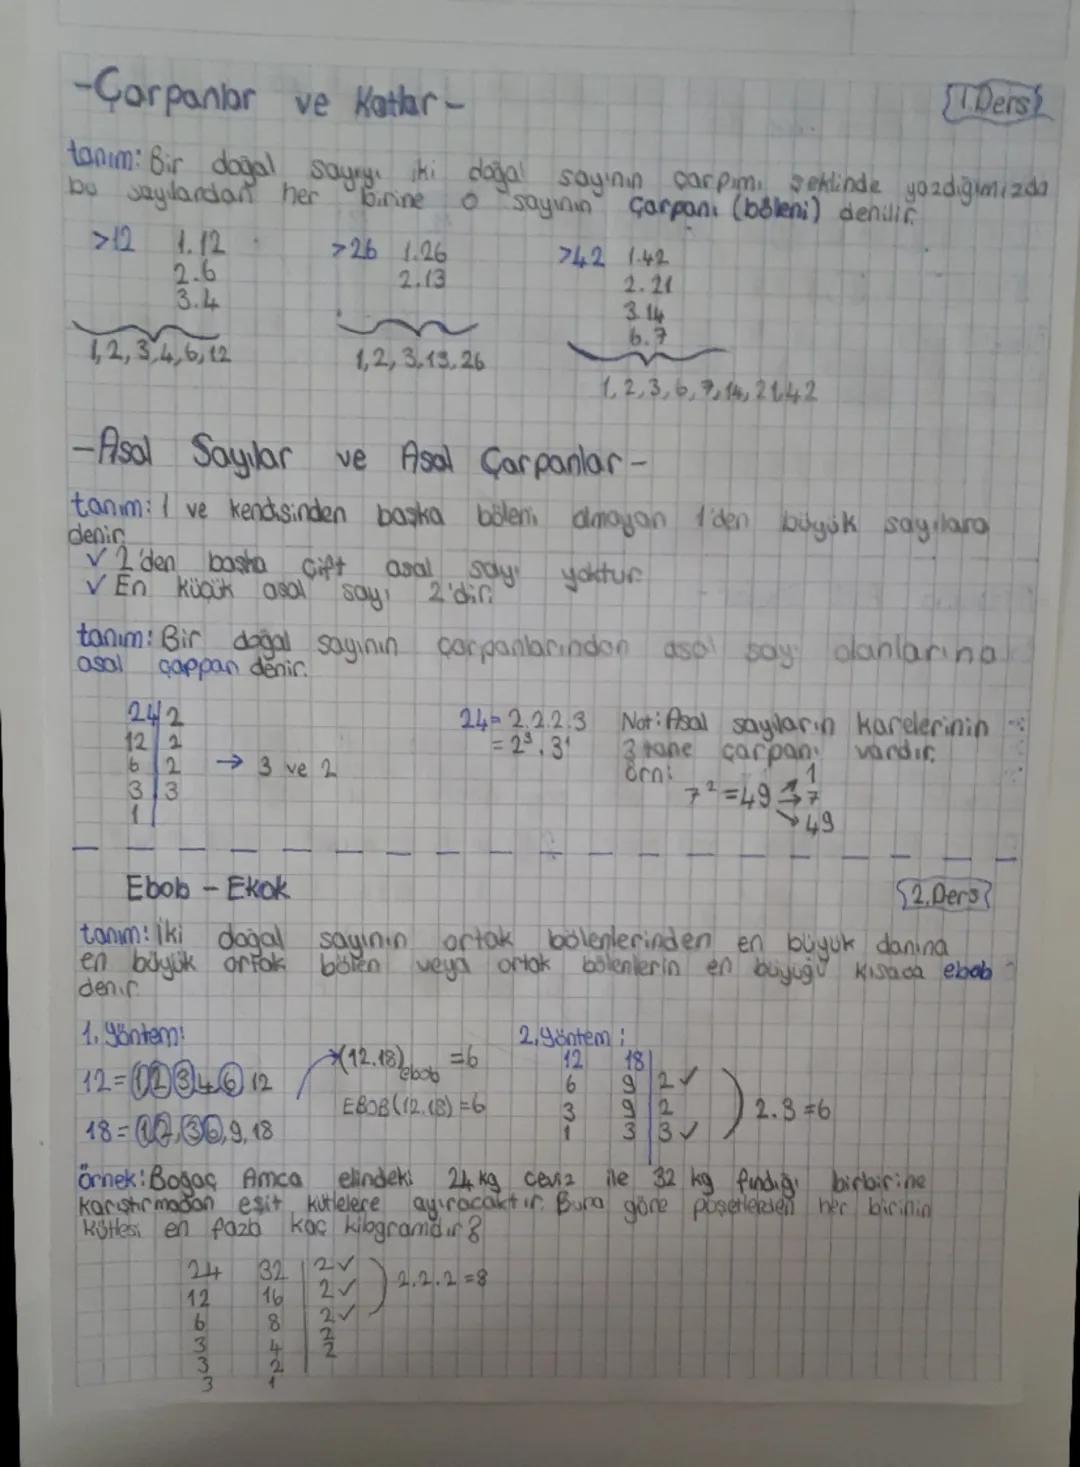 -Çarpanlar ve Katlar-
1.Ders
tanım: Bir doğal sayıyı iki doğal sayının çarpımı şeklinde yazdığımızda
bu sayılardan her birine o sayının çarpanı (böleni) denilir.
>12 1.12 >26 1.26 >42 1.42
2.6 2.13 2.21
3.4 3.14
6.7
1,2,3,4,6,12 1,2,3,13,26
1,2,3,6,7,14,21,42
-Asal Sayılar ve Asal Çarpanlar-
tanım: 1 ve kendisinden başka böleni olmayan 1'den büyük sayılara
denir.
✓ 2'den başka çift asal sayı yoktur.
✓ En küçük asal sayı 2'dir.
tanım: Bir doğal sayının çarpanlarından asal sayı olanlarına
asal çappan denir.
24 2 24=2.2.2.3 Not: Asal sayıların karelerinin
12 2 =2³.3¹ 3 tane çarpanı vardır.
6 2 → 3 ve 2 örn:
3 3 7²=49 → 1
1 → 7
→ 49
Ebob - Ekok
2.Ders
tanım: İki doğal sayının ortak bölenlerinden en büyük olanına
en büyük ortak bölen veya ortak bölenlerin en büyüğü kısaca ebob
denir.
1. Yöntem: 2. Yöntem:
12= 1 2 3 4 6 12 (12.18)ebob =6 12 18
EBOB(12.18)=6 6 9 2 ✓
18= 1,2,3,6,9,18 3 9 2 2.3=6
1 3 3 ✓
örnek: Boğaç Amca elindeki 24 kg ceviz ile 32 kg fındığı birbirine
karıştırmadan eşit kütlelere ayıracaktır. Buna göre poşetlerden her birinin
kütlesi en fazla kaç kilogramdır?
24 32 2 ✓
12 16 2 ✓ 2.2.2=8
6 8 2 ✓
3 4 2
3 2 2
3 1